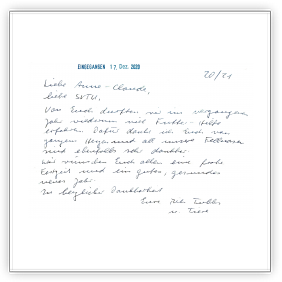 EINGEGANGEN 17. Dez. 2020
20/21
Liebe Anne-Claude,
liebe SVTU,
Von Euch durften wir im vergangenen
Jahr wiederum viel Futter-Hilfe
erfahren. Dafür danke ich Euch von
ganzem Herzen und all unsere Fellnasen
sind ebenfalls sehr dankbar.
Wir wünschen Euch allen eine frohe
und ein gutes, gesundes
neues Jahr.
In herzlicher Dankbarkeit
Eure
u. Tiere